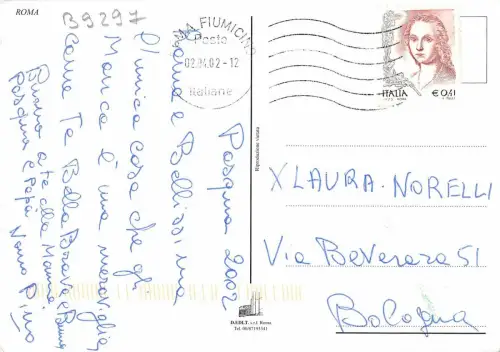 ROMA
B9297
ROMA FIUMICINO
Poste
02.04.02-12
Italiane
ITALIA
€ 0,41
Pasqua 2002
Roma è Bellissima
L'unica cosa che gli
Manca è una meraviglia
come Te Bella Brava e Buona
Buona a te alla Mamma
Pasqua e Papà Nonno Pino
Riproduzione vietata
X LAURA NORELLI
Via Beverara 51
Bologna
D.EDI.T. s.r.l. Roma